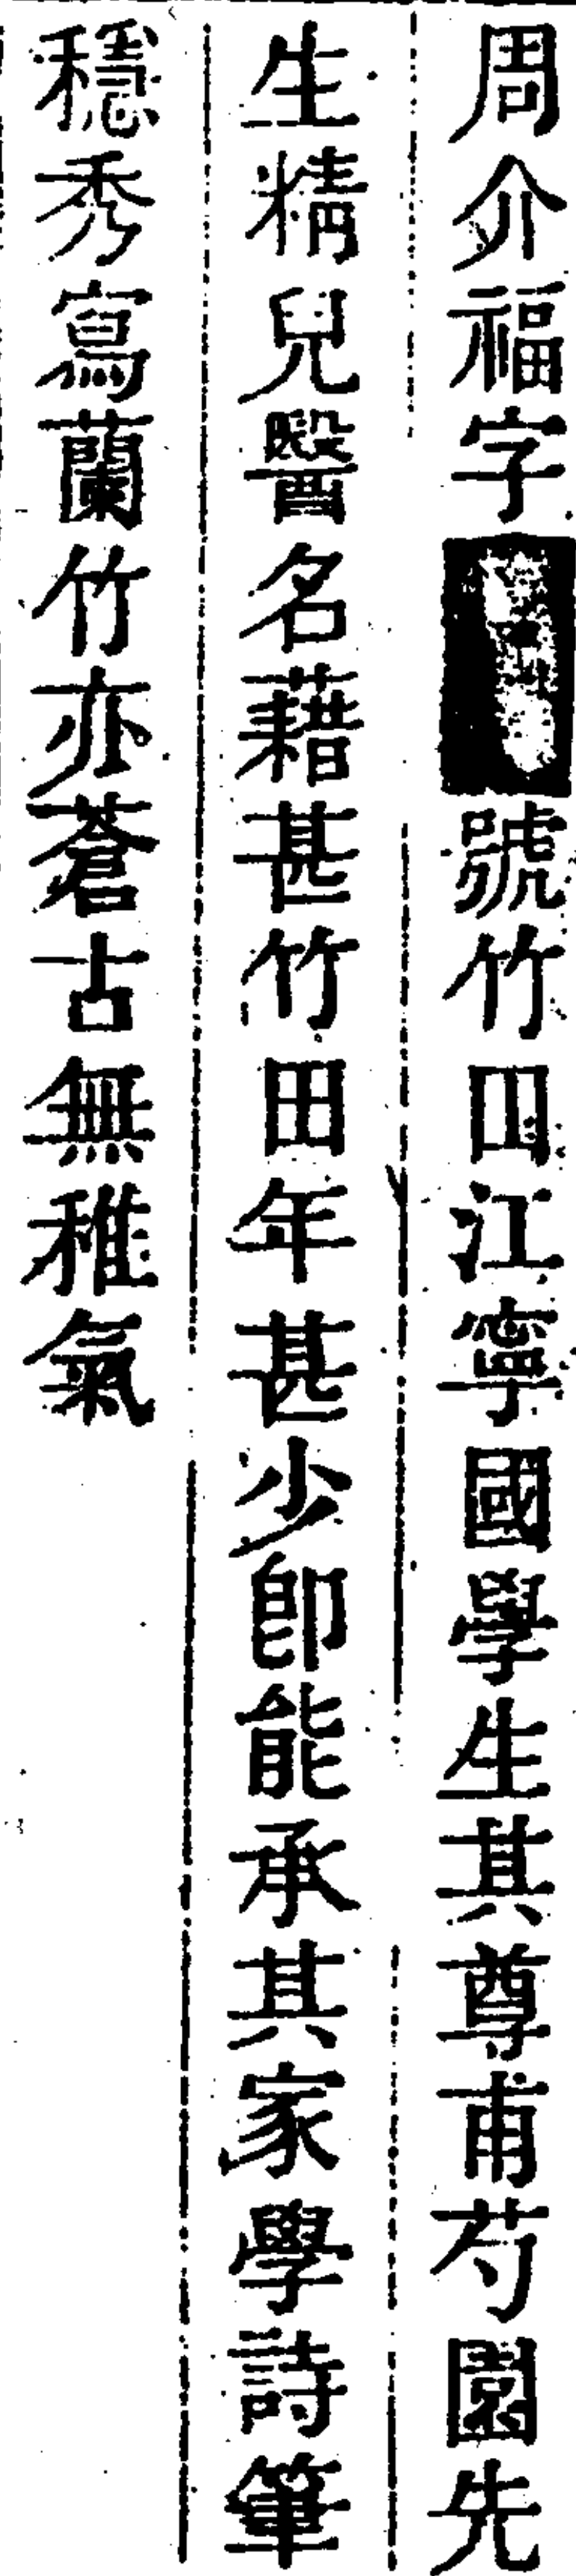 周介福字號竹田江寧國學生其尊甫芍園先
生精兒醫名藉甚竹田年甚少卽能承其家學詩筆
穩秀寫蘭竹亦蒼古無稚氣